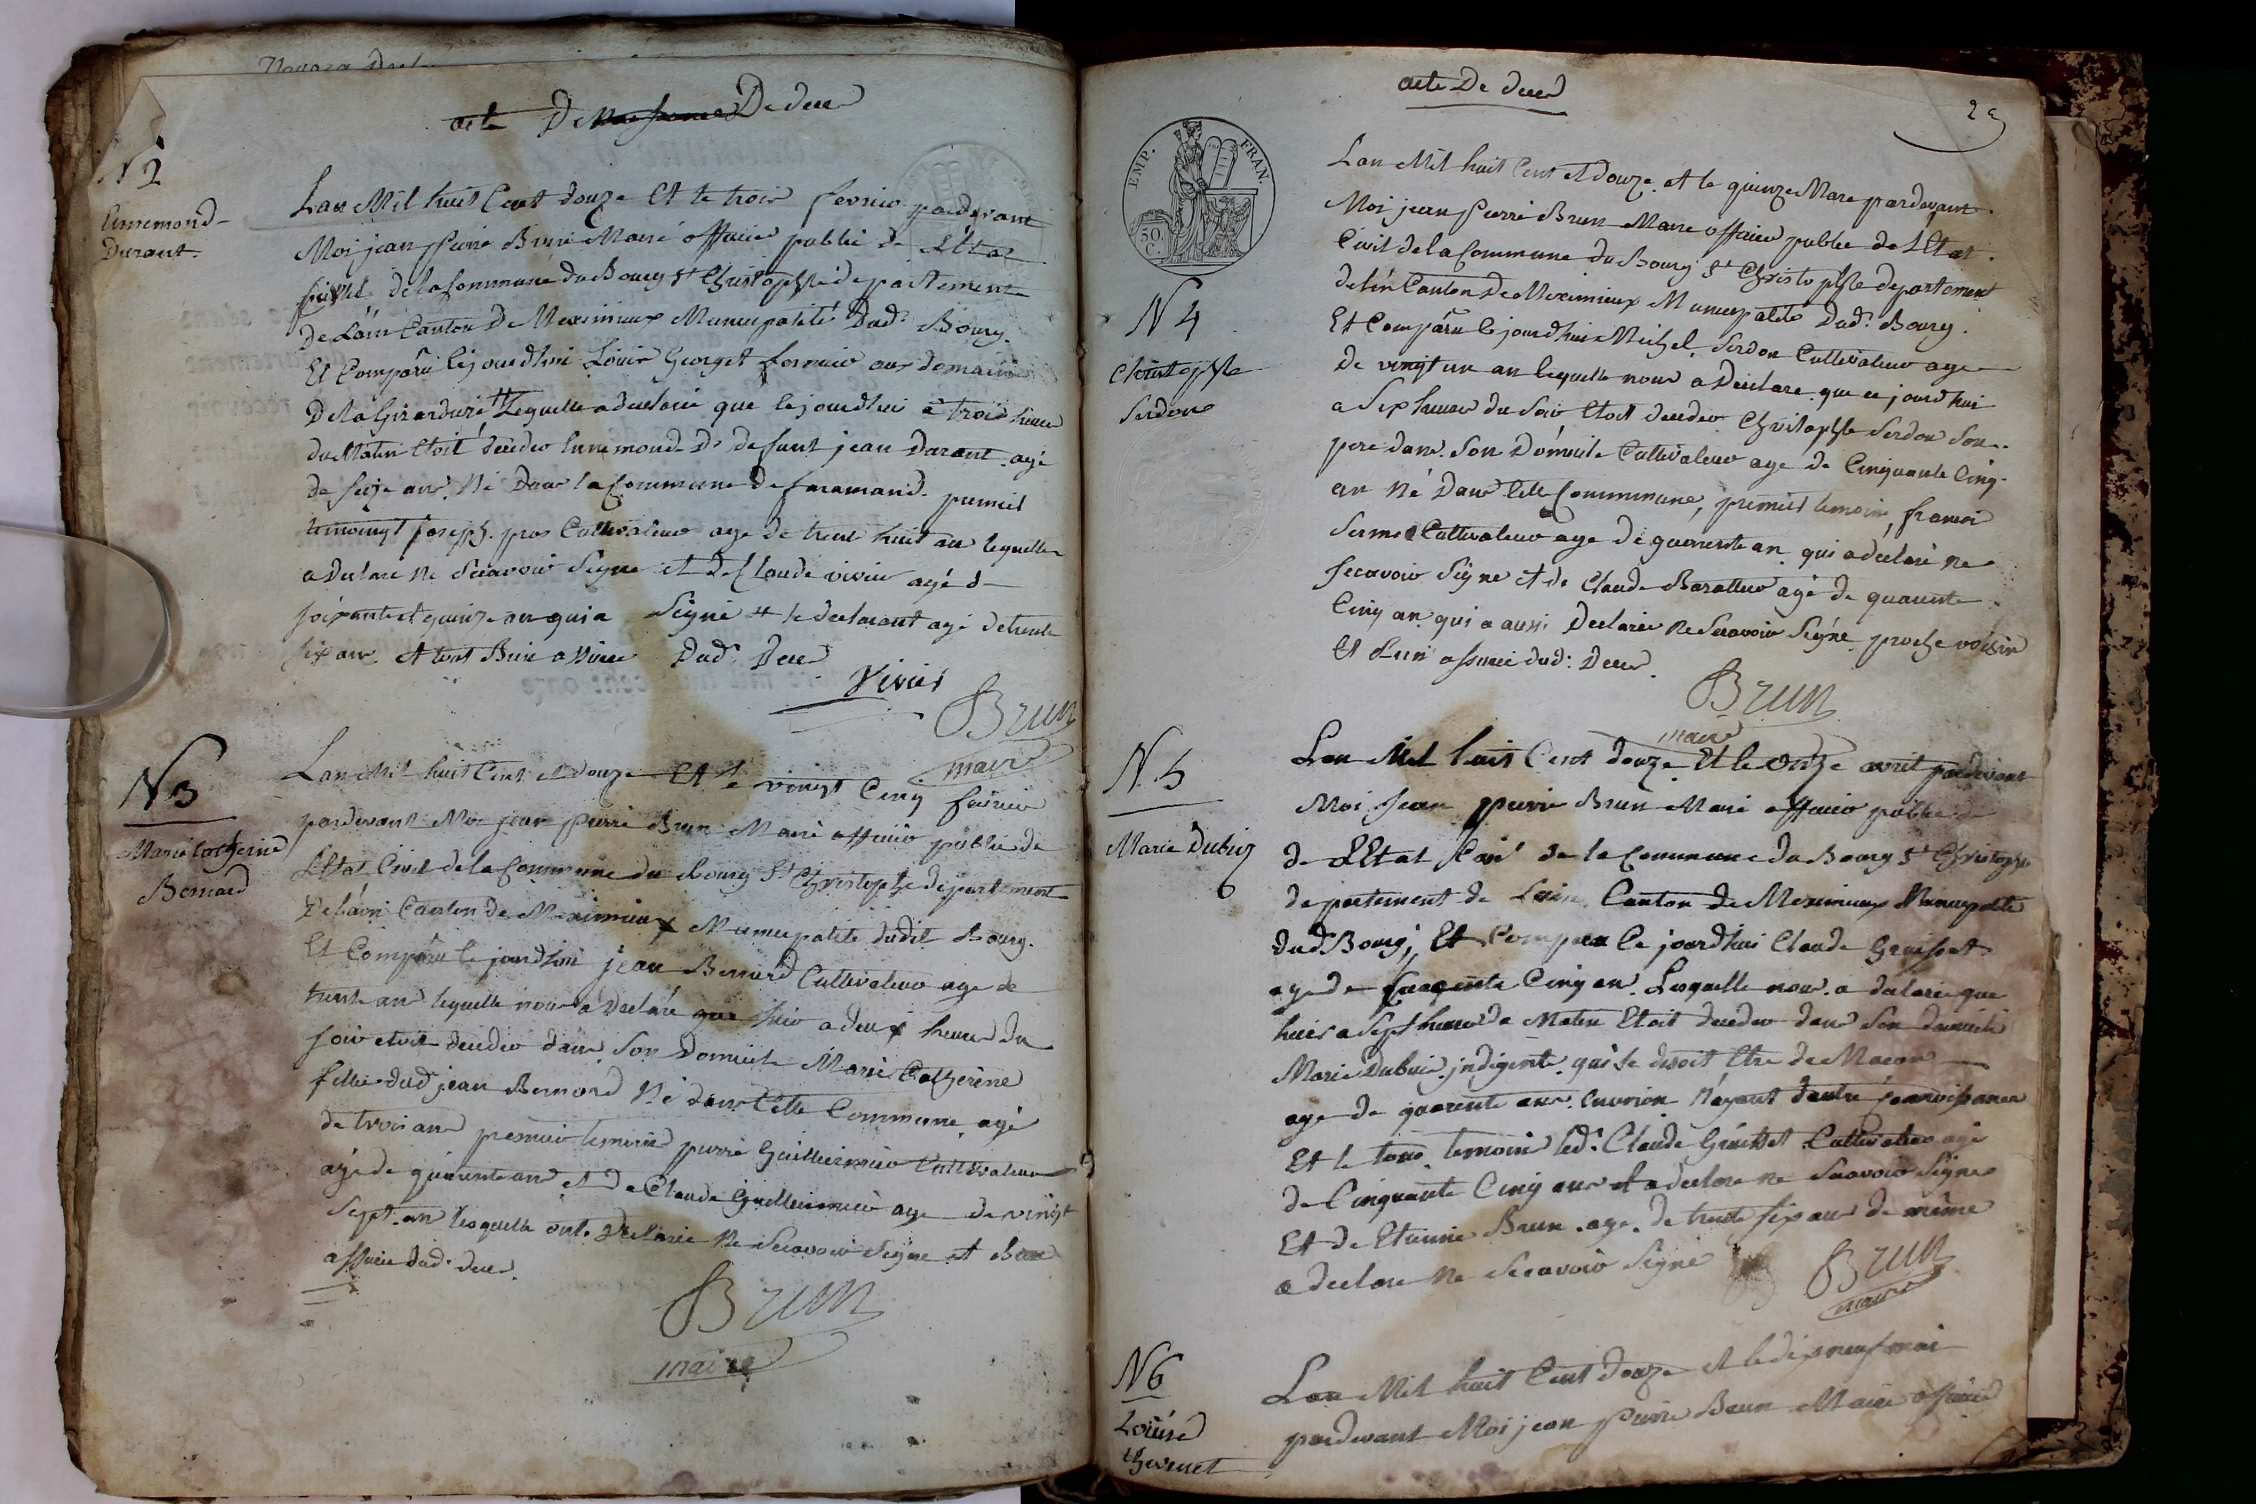 acte De naissance De deces
N 2
Ennemond
Durant
Lan Mil huit Cent douze Et le trois fevrier pardevant
Moi jean pierre Brun Maire officier public de LEtat
de la Commune du Bourg St Christophle departement
de Lain Canton De Meximieux Municipalité Dud. Bourg
Et Comparu lejourdhui Louis Georget fermier aux domaine
De la Girardiere # Lequelle a declaré que lejourdhui a trois heure
du Matin Etoit decedez Ennemond D. defunt jean Durant agé
de seize ans Né Dans la Commune de faramand. premier
temoingt joseph pros Cultivateur age de trent huit an lequelle
a Declare Ne Scavoir Signe et de Claude vivier agé d
soixante et quinze an qui a Signé # le declarant agé de trente
six ans Et tout Bien assure Dud. Deces
Vivier
Brun
maire
N 3
Marie Catherine
Bernard
Lan Mil huit Cent et Douze Et le vingt Cinq fevrier
pardevant Moi jean pierre Brun Maire officier public de
LEtat Civil de la Commune du Bourg St Christophe departement
De Lain Canton de Meximieux Municipalité dudit Bourg.
Et Comparu le jourdhui jean Bernard Cultivateur age de
trente an lequelle nous a Declaré que hier a deux heure du
soir etoit decedez dans Son Domicile Marie Catherine
fille dud jean Bernard Né dans Cette Commune agé
de trois ans premier temoin pierre Guillermier Cultivateur
agé de quarente ans et De Claude Guillermier age de vingt
Sept an lesquelle ont Declaré Ne Scavoir Signe et Bien
assure dud. deces.
Brun
maire
acte De deces
EMP. FRAN.
50 C.
N 4
Christophle
Serdon
Lan Mil huit Cent et Douze et le quinze Mars pardevant
Moi jean pierre Brun Maire officier public de LEtat
Civil de la Commune du Bourg St Christophle departement
de lin Canton De Meximieux Municipalité Dud. Bourg.
Et Comparu lejourdhui Michel Serdon Cultivateur age
De vingt un an lequelle nous a Declare que ce jourdhui
a Six heure du Soir Etoit decedez Christophle Serdon Son
pere dans Son Domicile Cultivateur age de Cinquante Cinq
an Né Dans Cette Commune, premier temoin, francoi
Cultivateur age de quarente an qui a declaré ne
Scavoir Signe et de Claude Baratteur agé de quarente
Cinq an qui a aussi Declarée Ne Scavoir Signe proche voisin
Et Bien assuré dud. Deces.
Brun
maire
N. 5
Marie Dubuis
Lan Mil huit Cent Douze Et le Onze avril pardevant
Moi Jean pierre Brun Maire officier public de
de LEtat Civil de la Commune du Bourg St Christophe
departement de Lain Canton De Meximieux Municipalité
dud Bourg, Et Comparu le jourdhui Claude Groisset
age de Cinquente Cinq an. Lesquelle nous a declaree que
hier a Sept heure du Matin Etoit decedez dans Son domicile
Marie Dubuis indigente qui Se disoit Etre de Macon
age de quarente ans environ N'ayant dautre connoissance
Et le tous temoin led. Claude Groisset Cultivateur agé
de Cinquante Cinq ans et a declare ne Scavoir Signe
Et de Etienne Brun age de trente six ans de même
a declare Ne Scavoir Signe
Brun
maire
N 6
Louise
thevenet
Lan Mil huit Cent douze et le dix neuf mai
pardevant Moi jean pierre Brun Maire officier